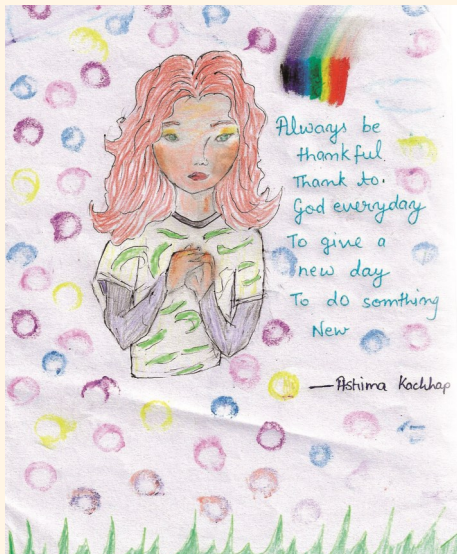 Always be
thankful.
Thank to.
God everyday
To give a
new day
To do somthing
New
— Ashima Kachhap